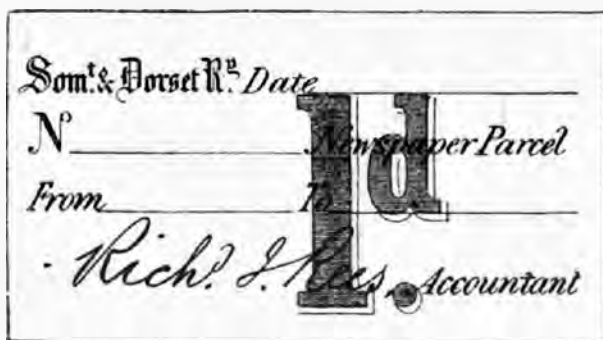 Som.t & Dorset R.y Date
N Newspaper Parcel
From To
1d.
Rich.d J. Rees, Accountant